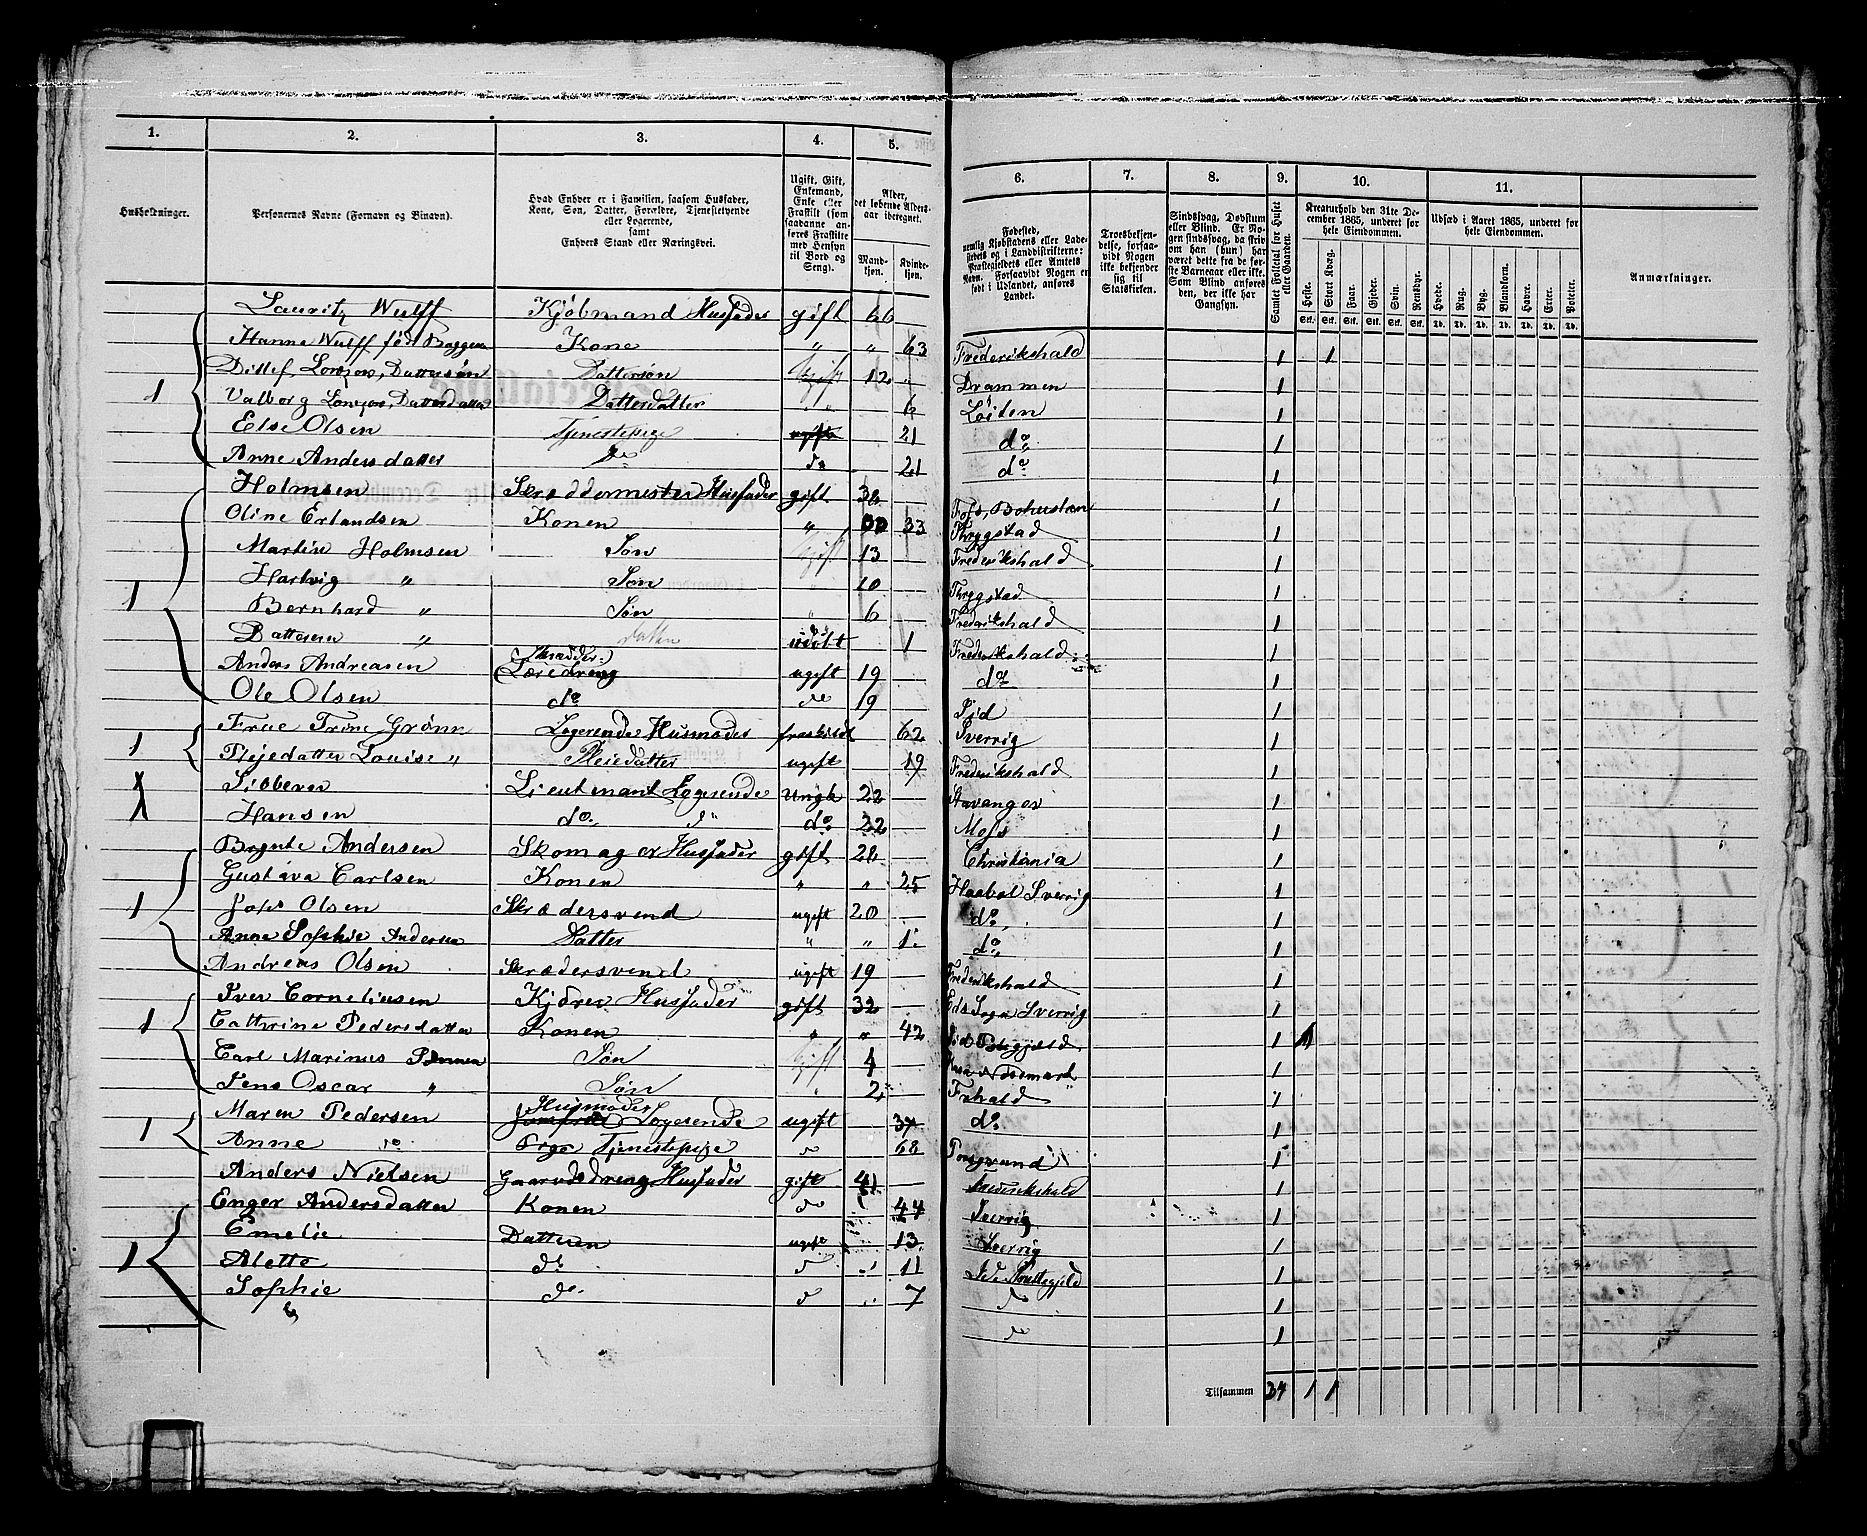 1. 2. 3. 4. 5.
Husholdninger.
Personernes Navne (Fornavn og Binavn).
Hvad Enhver er i Familien, saasom Husfader, Kone, Søn, Datter, Forældre, Tjenestetyende eller Logerende, samt Enhvers Stand eller Næringsvei.
Ugift, Gift, Enkemand, Enke eller Fraskilt (som saadanne anføres Fraskilte med Hensyn til Bord og Seng).
Alder, det løbende Alders-aar iberegnet.
Mand-kjøn. Kvinde-kjøn.
Lauritz Wulff Kjøbmand Husfader gift 66
Hanne Wulff fød Kone " " 63
Ditlef Dattersøn Dattersøn 12
1 Valborg Datterdatter Datterdatter " 6
Else Olsen Tjenestepige ugift 21
Anne Andersdatter do do 21
Holmsen Skræddermester Husfader gift 36
Oline Erlandsen Konen " 33
Martin Holmsen Søn 13
1 Hartvig " Søn 10
Bernhard " Søn " 6
" Datter udøbt 1
Anders Andreasen Skrædder Læredreng ugift 19
Ole Olsen do do 19
Frue Trine Grønn Logerende Husmoder fraskildt 62
1 Plejedatter Louise " Pleiedatter ugift 19
Sibbern Lieutnant Logerende Ungk 22
Hansen do " do 22
Brynte Andersen Skomager Husfader gift 28
Gustava Carlsen Konen " " 25
1 Olsen Skrædersvend ugift 20
Anne Sophie Andersen Datter " " 1
Andreas Olsen Skrædersvend ugift 19
Iver Corneliusen Kjører Husfader gift 32
1 Cathrine Pedersdatter Konen " " 42
Carl Marinus Søn 4
Jens Oscar " Søn 2
Maren Pedersen Husmoder Logerende ugift 37
1 Anne do Tjenestepige do 68
Anders Nielsen Gaardsdreng Husfader gift 41
Enger Andersdatter Konen do 44
Emelie Datteren ugift 13
1 Alette do do 11
Sophie do do 7
6. 7. 8. 9. 10. 11.
Fødested, nemlig Kjøbstadens eller Ladestedets og i Landdistrikterne: Præstegjeldets eller Amtets Navn. Forsaavidt Nogen er født i Udlandet, anføres Landet.
Troesbekjendelse, forsaavidt Nogen ikke bekjender sig til Statskirken.
Sindssvag, Døvstum eller Blind. Er Nogen sindssvag, da skriv om han (hun) har været dette fra de første Barneaar eller ikke. Som Blind anføres den, der ikke har Gangsyn.
Samlet Folketal for Huset eller Gaarden.
Kreaturhold den 31te December 1865, underet for hele Eiendommen.
Udsæd i Aaret 1865, underet for hele Eiendommen.
Anmærkninger.
Heste. Stort Kvæg. Faar. Gjeder. Svin. Rensdyr. Hvede. Rug. Byg. Blandkorn. Havre. Erter. Poteter.
Stk. Stk. Stk. Stk. Stk. Stk. Td. Td. Td. Td. Td. Td. Td.
Frederikshald 1 1
Drammen 1
Løiten 1
do 1
do 1
Foss, Bohuslæn 1
Thrygstad 1
Frederikshald 1
Thrygstad 1
Frederikshald 1
Frederikshald 1
do 1
Id 1
Sverrig 1
Frederikshald 1
Stavanger 1
Moss 1
Christiania 1
Haabol Sverrig 1
do 1
do 1
Frederikshald 1
Eds Sogn Sverrig 1
Id Prstgjeld 1 1
1
Frhald 1
do 1
Porsgrund 1
Frederikshald 1
Sverrig 1
Sverrig 1
Id Præstegjeld 1
do 1
do 1
Tilsammen 34 1 1